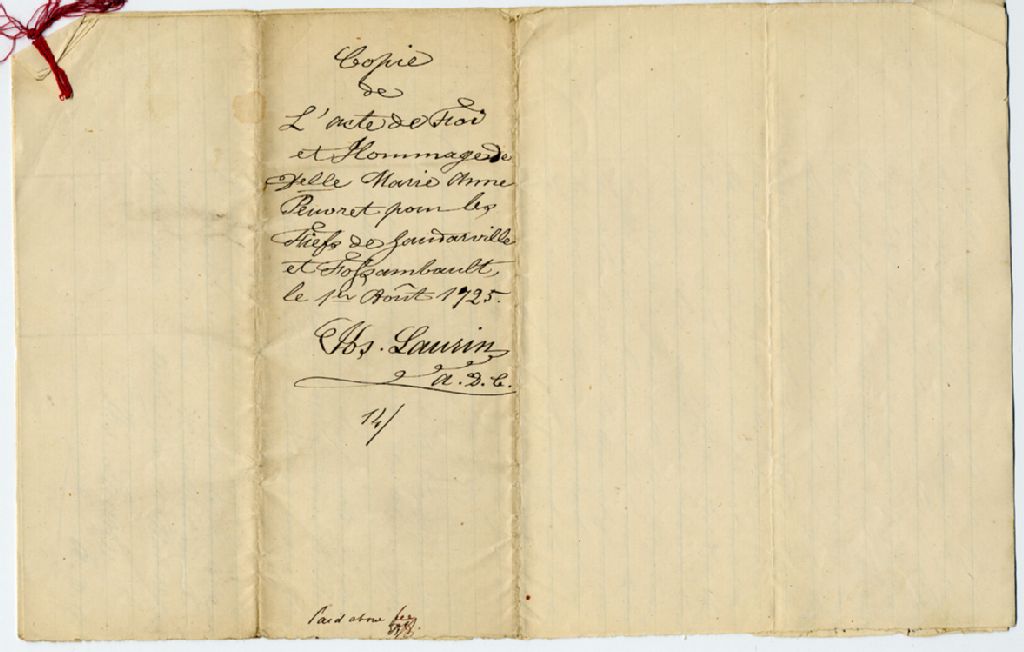 Copie
de
L'acte de Foi
et Hommage de
Delle Marie Anne
Peuvret pour les
Fiefs de Gaudarville
et Fossambault,
le 1er Août 1725.
Jos. Laurin
A. D. C.
14/
Paid